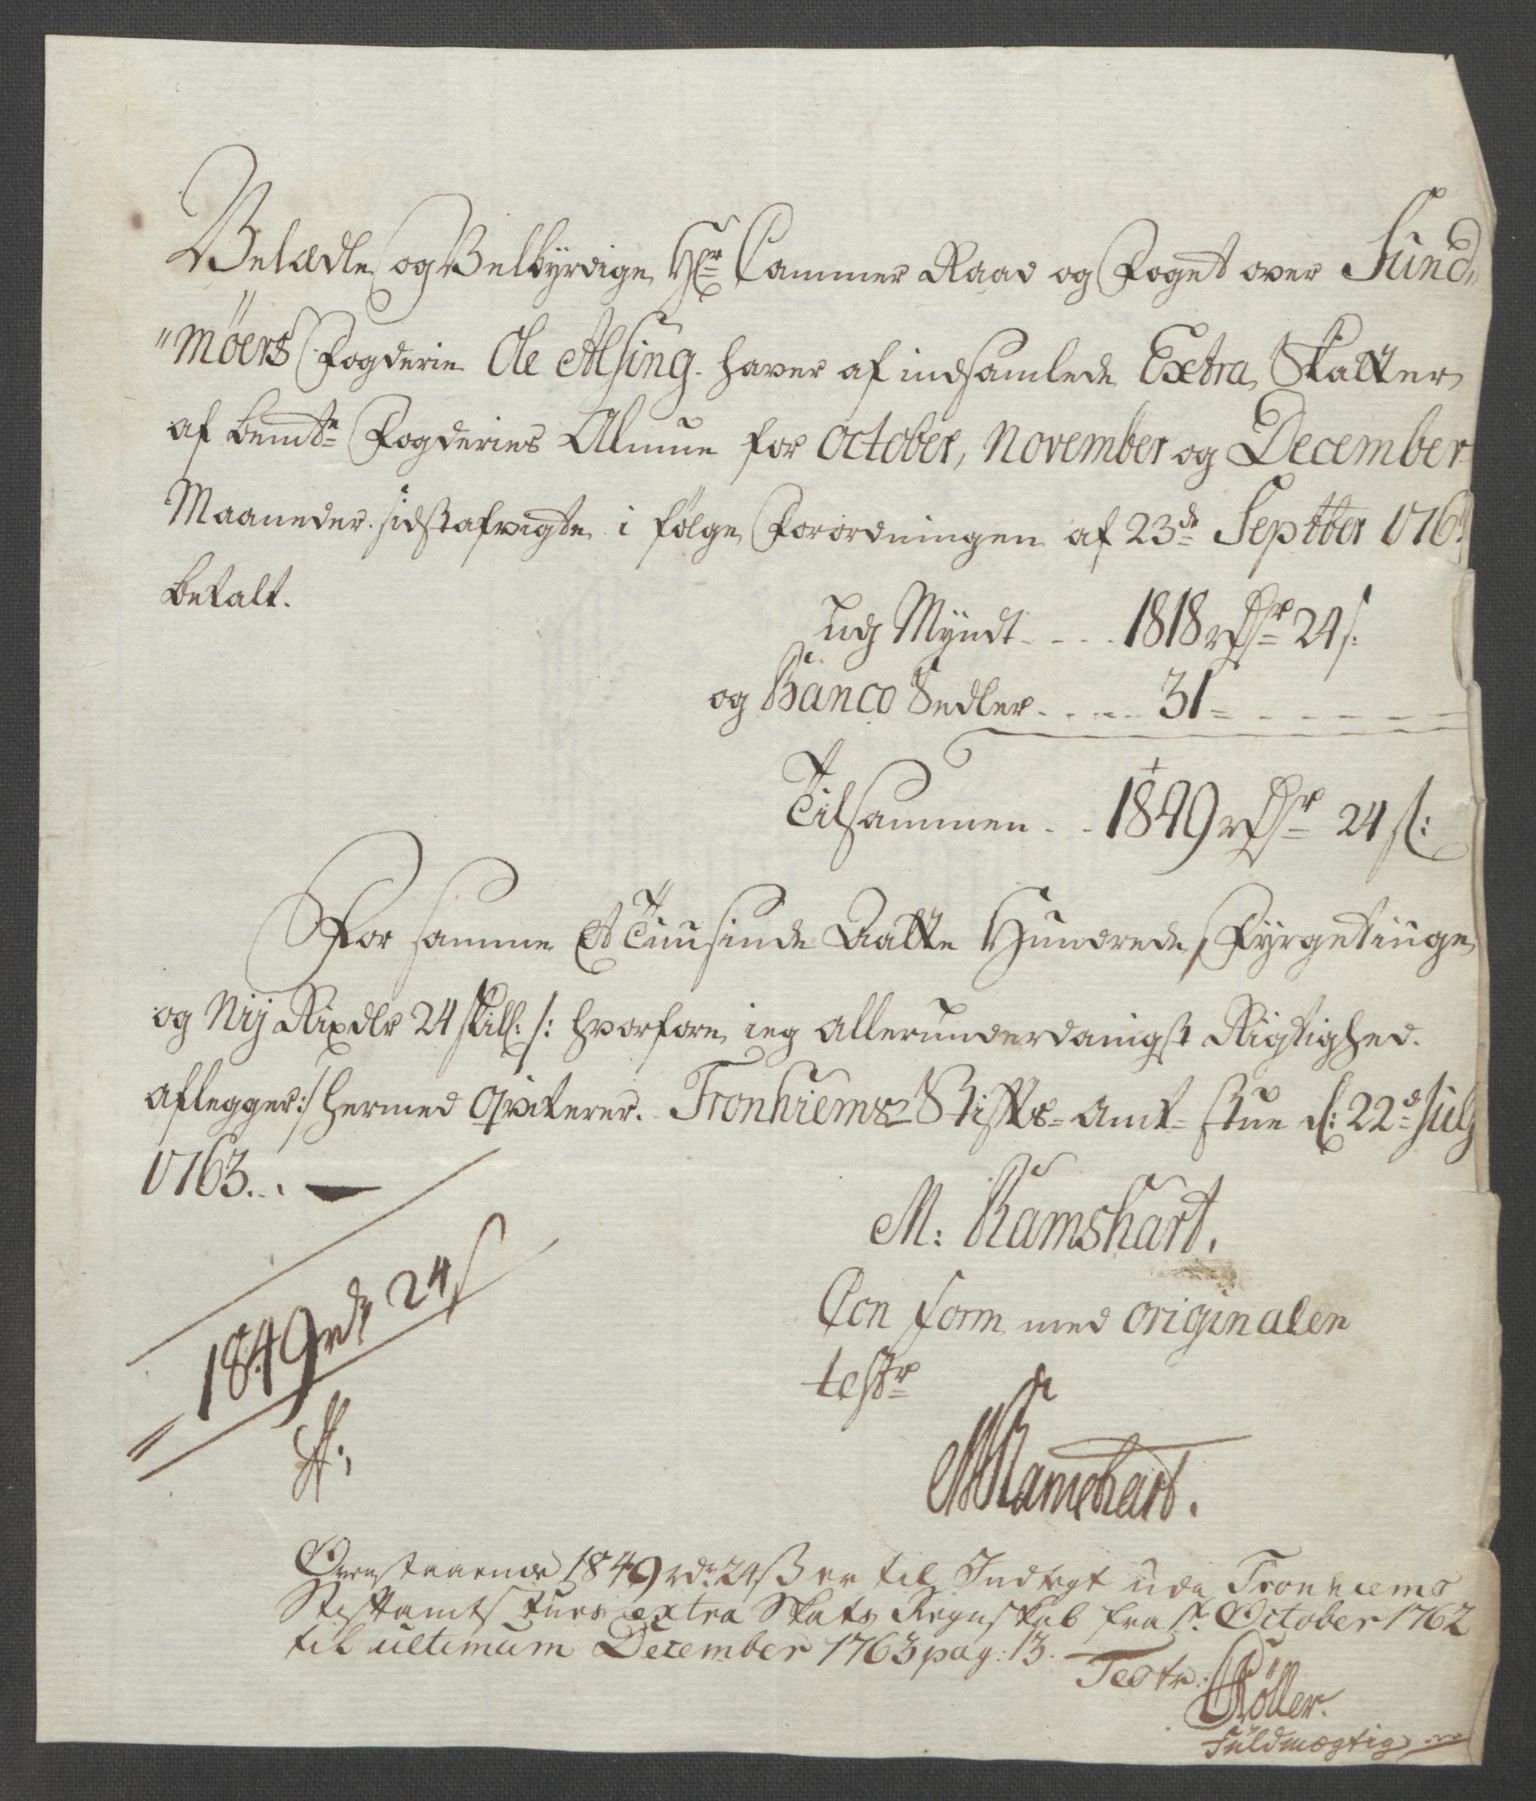 Velædle og Velbyrdige Hr Cammer Raad og Foget over Sund,,
"møers Fogderie Ole Alsing haver af indsamlede Extra Skatter
af bemte Fogderies Almue for October, November og December
Maaneder sidstafvigte i følge Forordningen af 23de Septber 176
betalt.
udj Myndt - - - 1818 rdr 24 s:
og Banco Sedler - - - - 31 =
Tilsammen - - 1849 rdr 24 s:
For samme Et Tuusinde Aatte Hundrede Fyrgetiuge
og Nij Rixdlr 24 skill: /: hvorfore ieg allerunderdanigst Rigtighed
aflegger :/ hermed Qviterer. Tronhiems Stifts-amt-stue d: 22de July
1763.
M: Ramshart.
Con form med originalen
testr
MRamshart.
1849 rdr 24 s
Ovenstaaende 1849 rdr 24 ß er til Indtegt udi Tronhiems
Stiftamtstues extra Skats Regnskab fra 1ste October 1762
til ultimum December 1763 pag: 13.
Testr: Röller.
Fuldmægtig